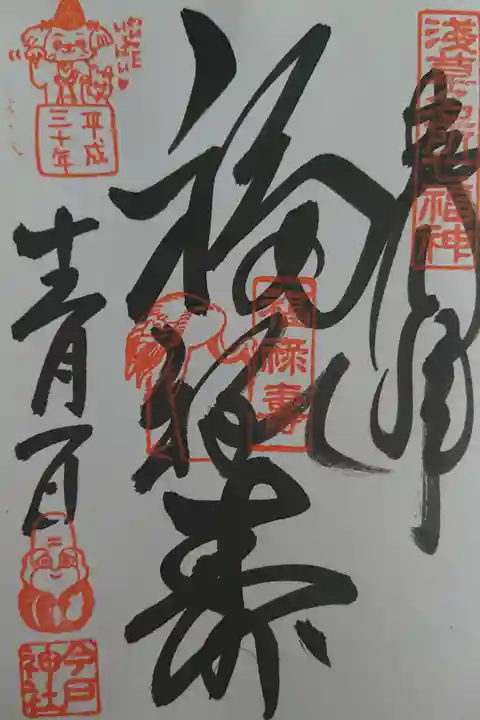 奉拝
浅草名所七福神
福禄寿
福禄壽
平成
三十年
今戸
神社